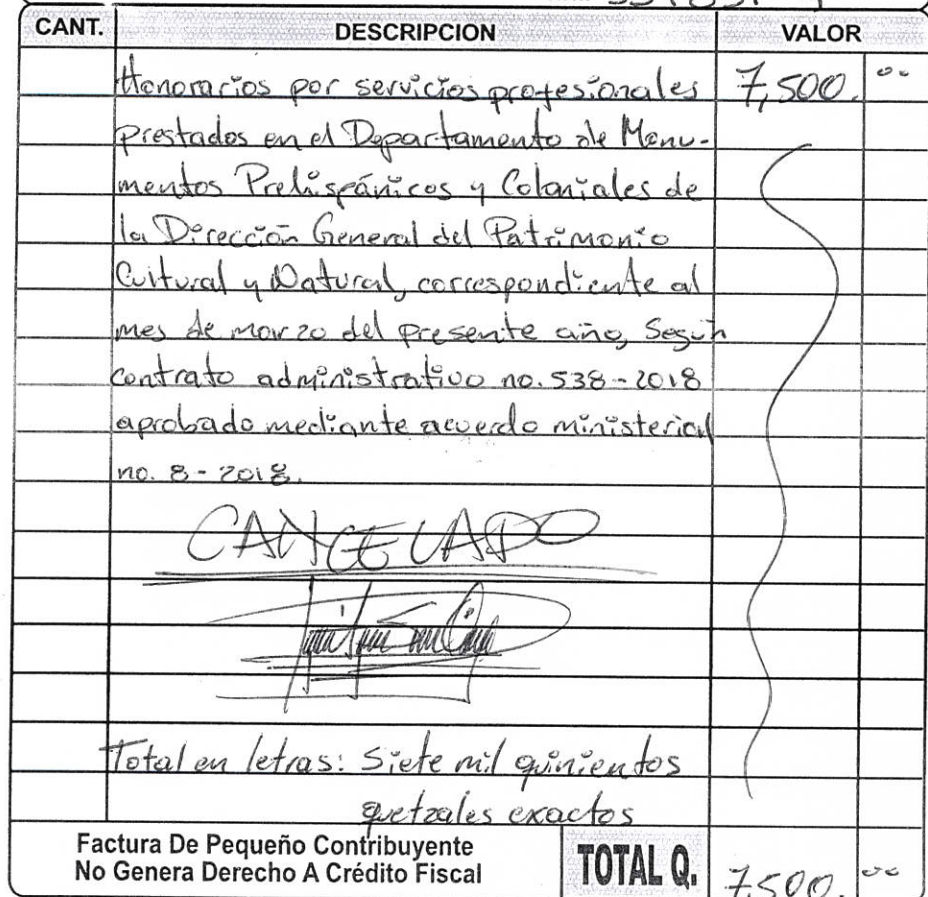 CANT. DESCRIPCION VALOR
Honorarios por servicios profesionales 7,500. 00
prestados en el Departamento de Monu-
mentos Prehispánicos y Coloniales de
la Dirección General del Patrimonio
Cultural y Natural, correspondiente al
mes de marzo del presente año, Según
contrato administrativo no. 538-2018
aprobado mediante acuerdo ministerial
no. 8-2018.
CANCELADO
Total en letras: Siete mil quinientos
quetzales exactos
Factura De Pequeño Contribuyente
No Genera Derecho A Crédito Fiscal
TOTAL Q. 7,500. 00